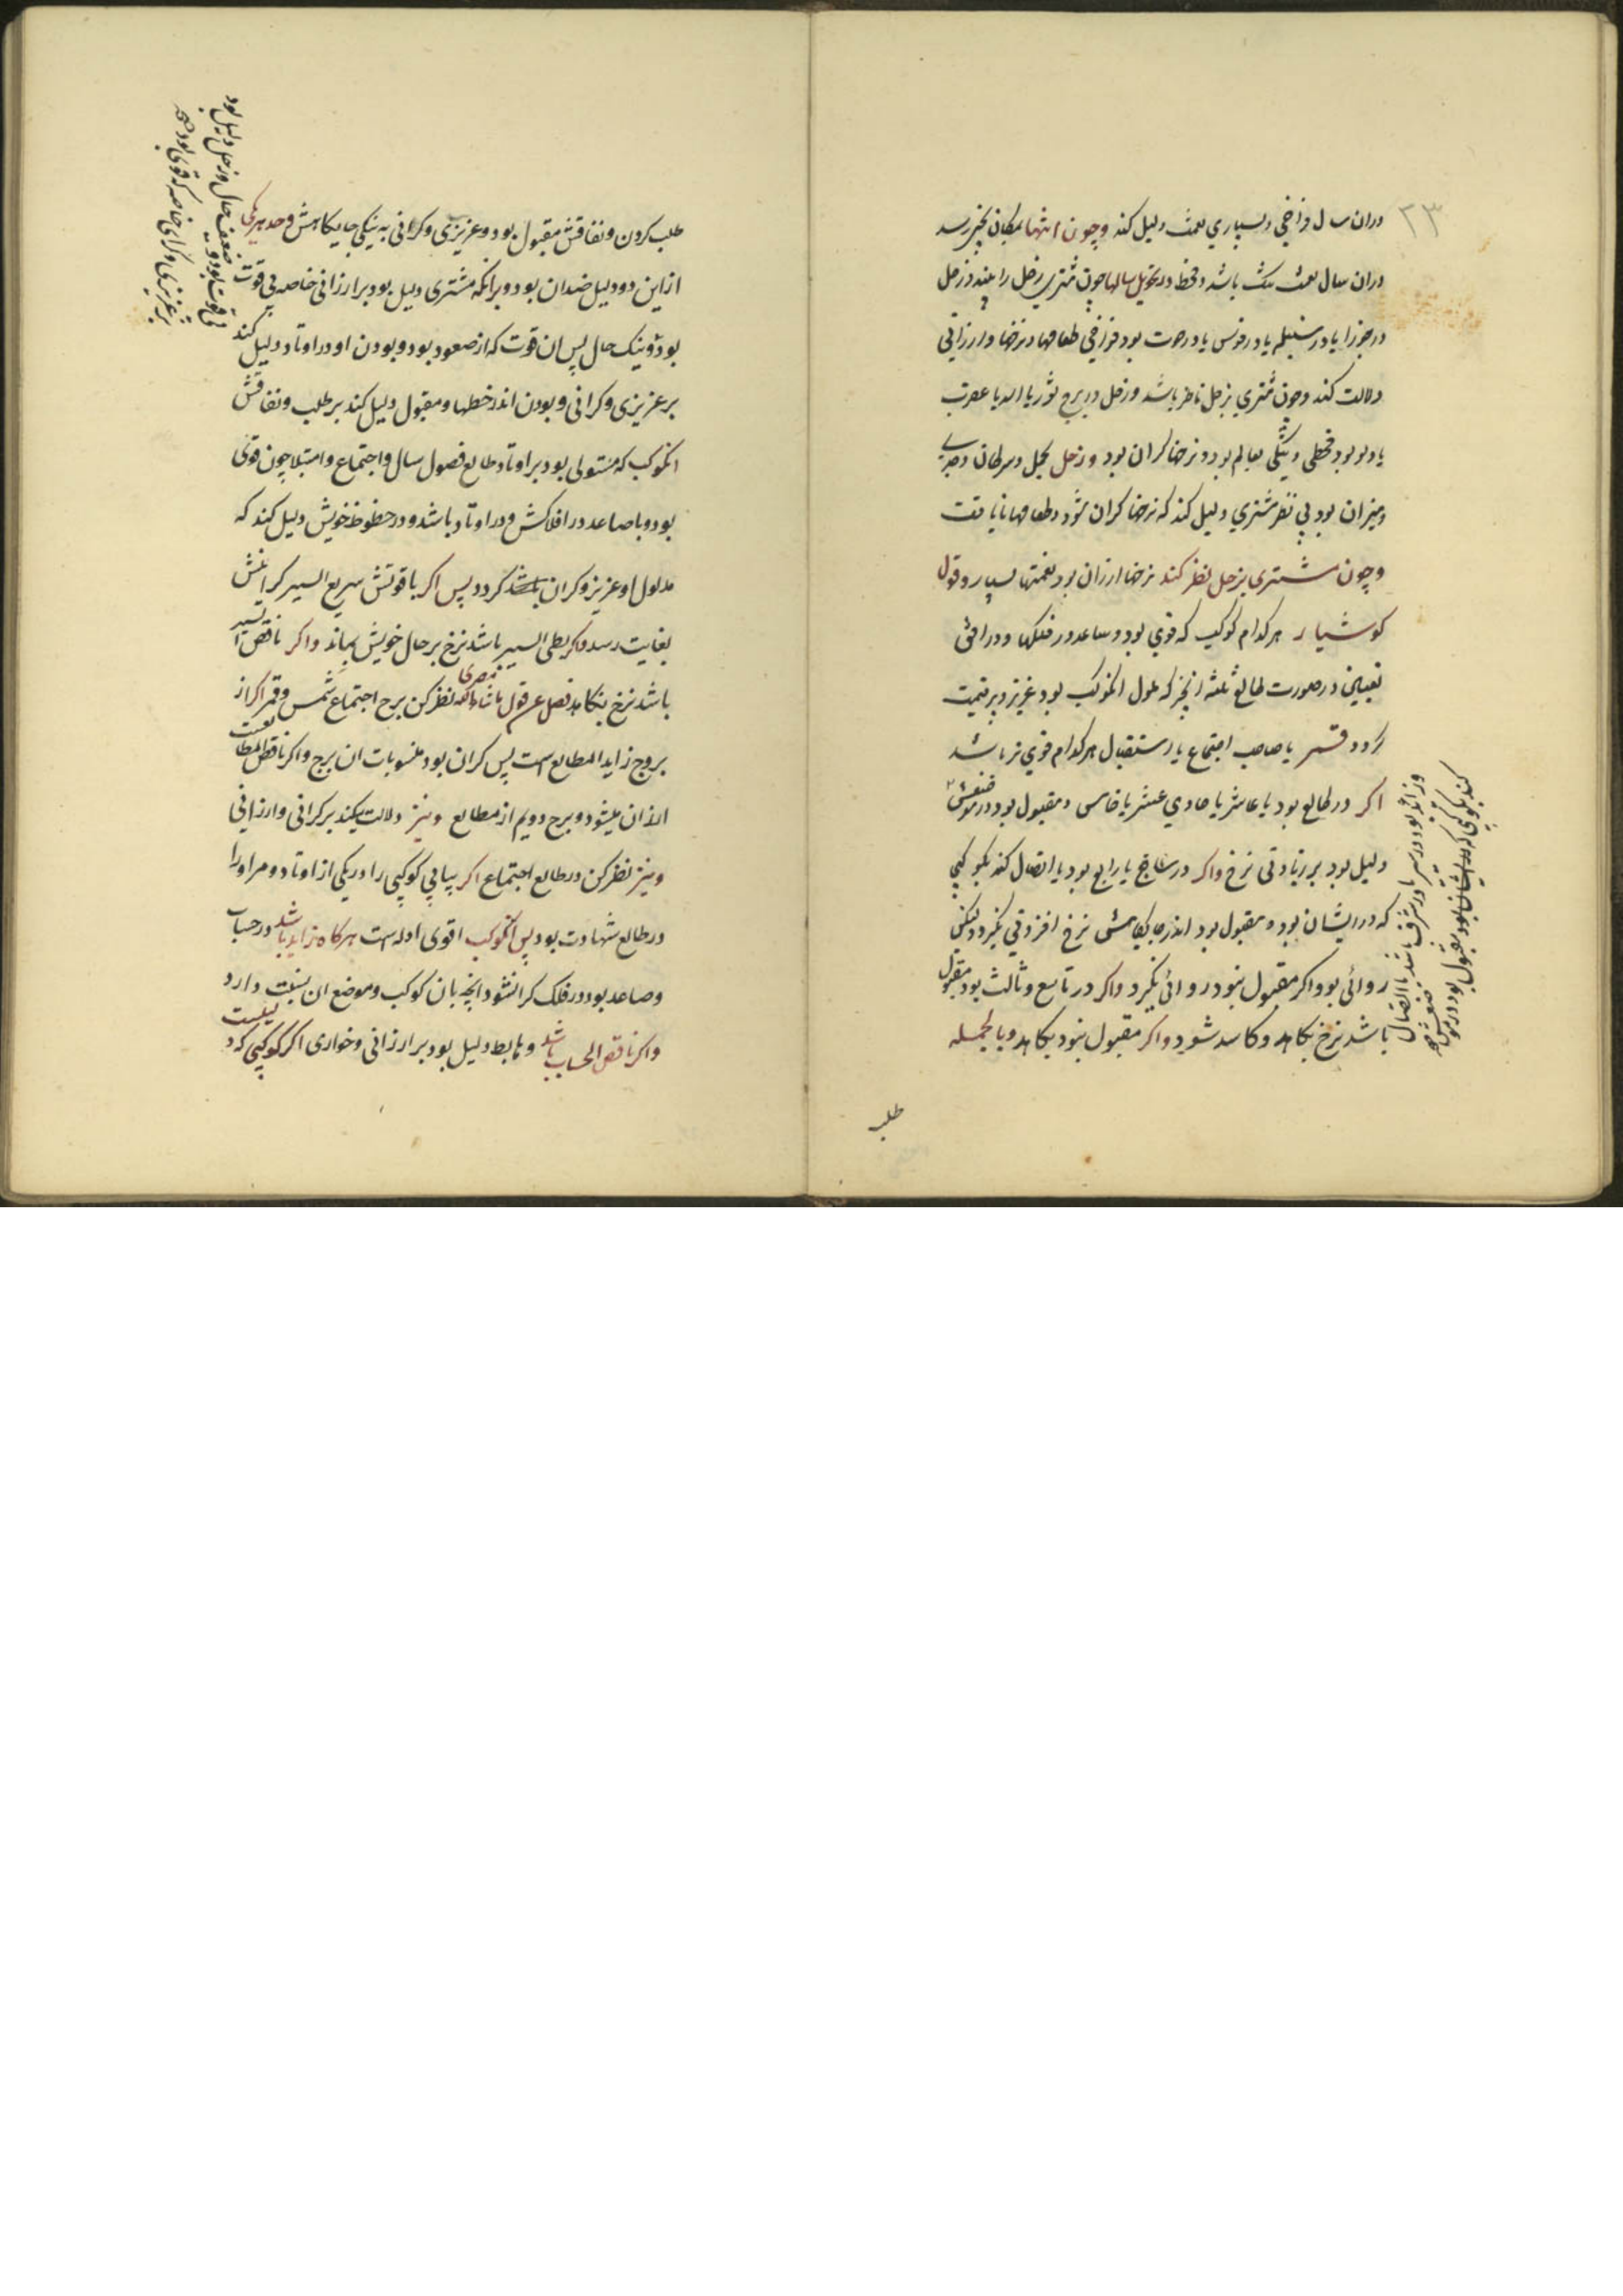 ۲۳
دران سال فراخی و بسیاری نعمت دلیل کند و چون انتها بمکان نحس رسد
دران سال نعمت تنگ باشد و قحط و در تحویل سالها چون مشتری زحل را بیند و زحل
در جوزا یا در سنبله یا در قوس یا در حوت بود فراخی طعامها و نرخها و ارزانی
دلالت کند و چون مشتری بزحل ناظر باشد و زحل در برج ثور یا اسد یا عقرب
یا دلو بود قحطی و تنگی بعالم بود و نرخها کران بود و زحل بحمل و سرطان و جدی
و میزان بود بی نظر مشتری دلیل کند که نرخها کران شود و طعامها نایافت
و چون مشتری بزحل نظر کند نرخها ارزان بود نعمتها بسیار و قول
کوشیار هر کدام کوکب که قوی بود و صاعد در فلکها و در افق
در صورت طالع ثلثه انچیز که مدلول انکوکب بود عزیز و پر قیمت
کردد قمر یا صاحب اجتماع یا استقبال هر کدام قوی تر باشد
اکر در طالع بود یا عاشر یا حادی عشر یا خامس و مقبول بود در موضعش
دلیل بود بر زیادتی نرخ واکر در سابع یا رابع بود یا اتصال کند بکوکبی
که در ایشان بود و مقبول بود اندر جایکاهش نرخ افزونی نکیرد ولیکن
روائی بود واکر مقبول نبود روائی نکیرد واکر در تاسع و ثالث بود مقبول
باشد نرخ بکاهد و کاسد شود واکر مقبول نبود بکاهد و بالجمله
طلب
طلب کردن و نفاقش مقبول بود و عزیزی و کرانی به نیکی جایکاهش و حد هر یکی
ازین دو دلیل ضدان بود و برانکه مشتری دلیل بود بر ارزانی خاصه بی قوت
بود و نیک حال پس ان قوت که از صعود بود و بودن او در اوتاد دلیل کند
بر عزیزی و کرانی و بودن اندر خطها و مقبول دلیل کند بر طلب و نفاقش
انکوکب که مستولی بود بر اوتاد طالع فصول سال و اجتماع و امتلا چون قوی
بود و یا صاعد در افلاکش و در اوتاد باشد و در حظوظ خویش دلیل کند که
مدلول او عزیز و کران باشد کردد پس اکر با قوتش سریع السیر کرانیش
بغایت رسد واکر بطی السیر باشد نرخ بر حال خویش بماند واکر ناقص السیر
باشد نرخ بکاهد فصل عن قول ماشاءالله مصری نظر کن برج اجتماع شمس و قمر اکر از
بروج زاید المطالع است پس کران بود منسوبات ان برج واکر ناقص المطالعست
ارزان میشود و برج دویم از مطالع و نیز دلالت میکند بر کرانی و ارزانی
و نیز نظر کن در طالع اجتماع اکر بیابی کوکبی را در یکی از اوتاد و مر او را
در طالع شهادت بود پس انکوکب اقوی ادله است هرکاه زاید باشد در حساب
و صاعد بود در فلک کرانشود انچه بان کوکب و موضع ان نسبت دارد
واکر ناقص الحساب باشد و هابط دلیل بود بر ارزانی و خواری اکر کوکبی که د